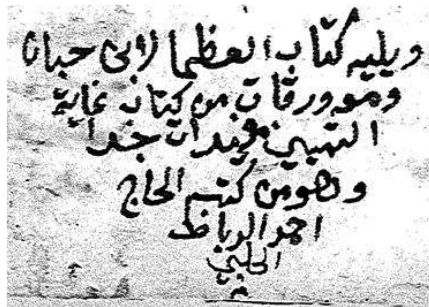 ويليه كتاب العظما لابن حبان
ومعه ورقات من كتاب غاية
التبيين مفيدات جدا
وهو من كتب الحاج
احمد الرباط
الحلبي